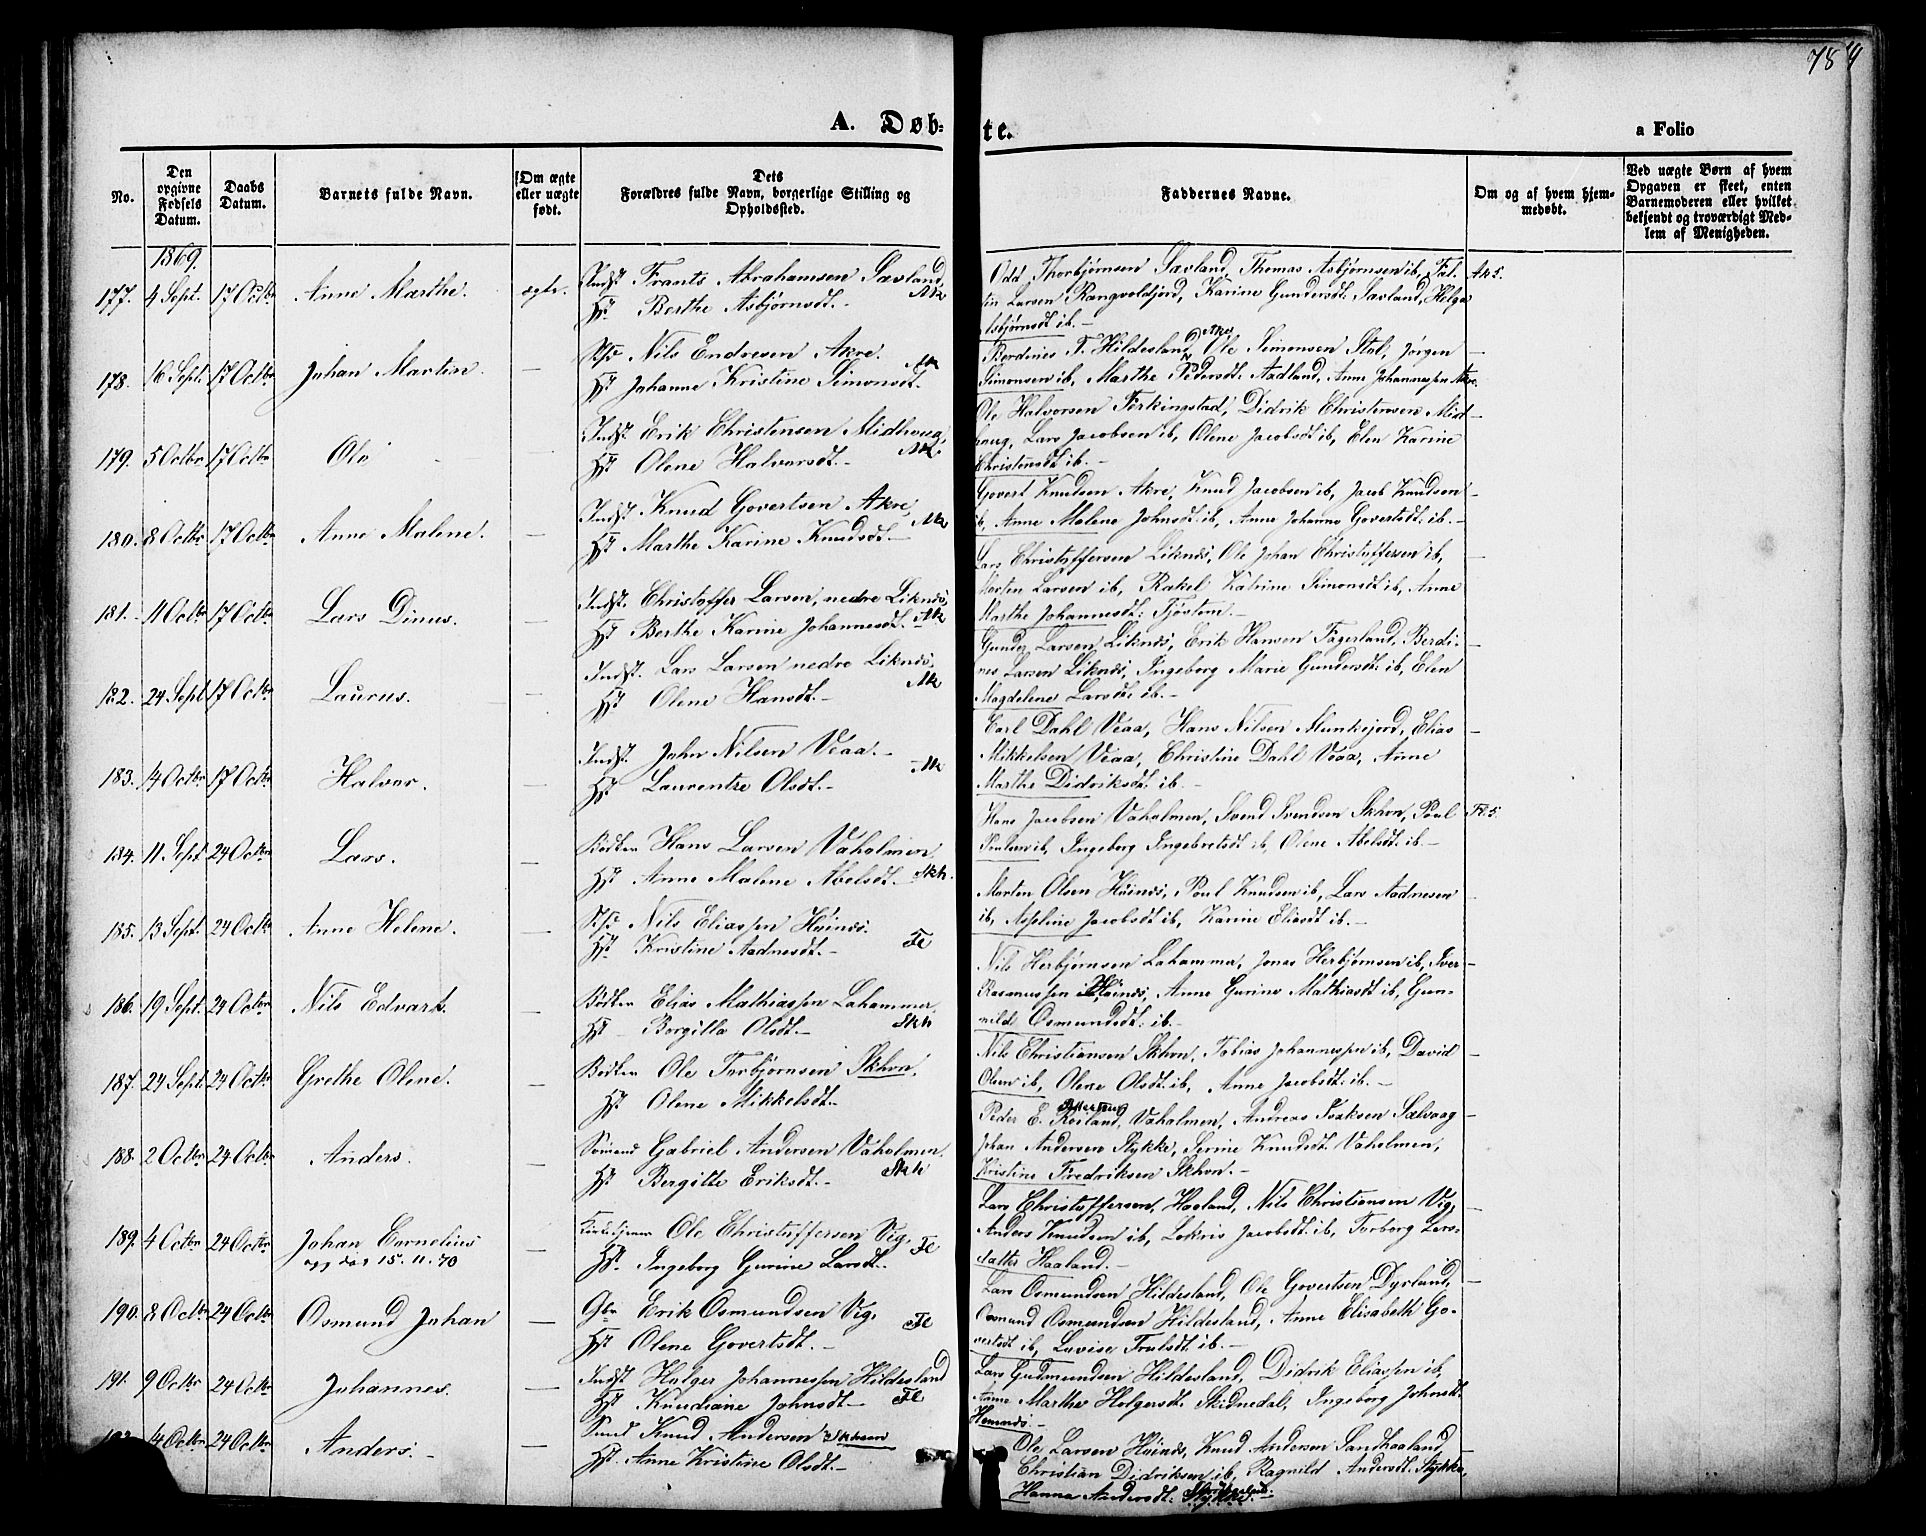 78 4
A. Døb-te.
a Folio
No.
Den opgivne Fødsels Datum.
Daabs Datum.
Barnets fulde Navn.
Om ægte eller uægte født.
Dets Forældres fulde Navn, borgerlige Stilling og Opholdssted.
Faddernes Navne.
Om og af hvem hjemmedøbt.
Ved uægte Børn af hvem Opgaven er skeet, enten Barnemoderen eller hvilket bekjendt og troværdigt Medlem af Menigheden.
1869.
177. 4 Sept. 17 Octbr Anne Marthe. ægte. Indst Frants Abrahamsen Sævland, Ak
Hst Berthe Asbjørnsdt.-
Odd Thorbjørnsen Sævland, Thomas Asbjørnsen ib, Fal- Ak 5.
tin Larsen Rangvoldjord, Karine Gundersdt Sævland, Helga
Asbjørnsdt ib.-
178. 16 Sept. 17 Octbr Johan Martin. — Nils Endresen Akre. Ak
Hst Johanne Kristine Simonsdt.
Berdines T. Hildesland Akre, Ole Simonsen Stol, Jørgen —
Simonsen ib, Marthe Pedersdt. Aadland, Anne Johannessen Akre.
179. 5 Octbr 17 Octbr Ole — Indst. Erik Christensen Midhoug, Ak.
Hst Olene Halvorsdt.-
Ole Halvorsen Ferkingstad, Didrik Christensen Mid- —
houg, Lars Jacobsen ib, Olene Jacobsdt ib, Elen Karine
Christensdt ib.-
180. 8 Octbr 17 Octbr Anne Malene. — Indst Knud Govertsen Akre, Ak
Hst Marthe Karine Knudsdt.-
Govert Knudsen Akre, Knud Jacobsen ib, Jacob Knudsen —
ib, Anne Malene Johnsdt. ib, Anne Johanne Govertsdt. ib.-
181. 11 Octbr 17 Octbr Lars Dinus. — Indst. Christoffer Larsen, nedre Liknes,
Hst Berthe Karine Johannesdt. Ak
Lars Christoffersen Liknes, Ole Johan Christoffersen ib, —
Morten Larsen ib, Rakel Katrine Simonsdt ib, Anne
Marthe Johannesdt. Tjøstem.-
182. 24 Sept 17 Octbr Laurus. — Indst. Lars Larsen nedre Liknes, Ak
Hst Olene Hansdt.-
Gunder Larsen Liknes, Erik Hansen Fagerland, Berdi- —
nes Larsen Liknes, Ingeborg Marie Gundersdt. ib, Elen
Magdelene Larsdt. ib.-
183. 14 Octbr 17 Octbr Halvor. — Indst. John Nilsen Veaa.- Ak
Hst Laurentze Olsdt.-
Carl Dahl Veaa, Hans Nilsen Munkejord, Elias —
Mikkelsen Veaa, Christine Dahl Veaa, Anne
Marthe Didriksdt. ib.-
184. 11 Sept 24 Octbr Lars. — Bødker Hans Larsen Vaholmen
Hst Anne Malene Abelsdt.- Skh.
Hans Jacobsen Vaholmen, Svend Svendsen Skhvn, Poul Fl 5.
Poulsen ib, Ingeborg Ingebretsdt ib, Olene Abelsdt. ib.-
185. 13 Sept. 24 Octbr Anne Helene. — Nils Eliassen Høines. Fl
Hst Kristine Aadnesdt.-
Martin Olsen Høines, Poul Knudsen ib, Lars Aadnesen —
ib, Aseline Jacobsdt ib, Karine Eliasdt ib.-
186. 19 Sept. 24 Octbr Nils Edvart. — Bødker Elias Mathiassen Lahammer. Skh
Hst Borgilla Olsdt.-
Nils Herbjørnsen Lahamma, Jonas Herbjørnsen ib, Iver —
Rasmussen Høines, Anne Gurine Mathiasdt ib, Gun-
nild Osmundsdt. ib.-
187. 24 Sept 24 Octbr Grethe Olene. — Bødker Ole Torbjørnsen Skhvn.
Hst. Olene Mikkelsdt.-
Nils Christiansen Skhvn, Tobias Johannessen ib, David —
Olsen ib, Olene Olsdt. ib, Anne Jacobsdt. ib.-
188. 2 Octbr 24 Octbr Anders. — Sømand Gabriel Andersen Vaholmen. Skh
Hst. Bergitte Eriksdt.-
Peder E. Røsland, Vaholmen, Andreas Isaksen Salvaag —
Johan Andersen Stykke, Serine Knudsdt. Vaholmen,
Kristine Fredriksen Skhvn.-
189. 4 Octbr 24 Octbr Johan Cornelius — Kirketjener Ole Christoffersen Vig, Fl
15. 11. 70 Hst. Ingeborg Gurine Larsdt.
Lars Christoffersen, Haaland, Nils Christiansen Vig, —
Anders Knudsen ib, Lokris Jacobsdt. ib, Torborg Lars-
datter Haaland.-
190. 8 Octbr 24 Octbr Osmund Johan — Gbr Erik Osmundsen Vig, Fl
Hst. Olene Govertsdt.-
Lars Osmundsen Hildesland, Ole Govertsen Dyrland, —
Osmund Osmundsen Hildesland, Anne Elisabeth Go-
vertsdt ib, Lovise Trulsdt ib.-
191. 9 Octbr 24 Octbr Johannes. — Indst Holger Johannessen Hildesland
Hst Knudiane Johnsdt.- Fl
Lars Gudmundsen Hildesland, Didrik Eliassen ib, —
Anne Marthe Holgersdt. Skidnedal, Ingeborg Johnsdt.
Hemnes.-
192. 14 Octbr 24 Octbr Anders.- — Smed Knud Andersen Skhvn
Hst. Anne Kristine Olsdt.-
Ole Larsen Høines, Knud Andersen Sandhaaland, —
Christian Didriksen ib, Ragnild Andersdt. Stykke,
Hanna Andersdt. Stykke.-